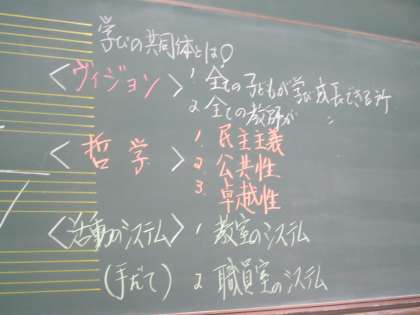 学びの共同体とは?
<ヴィジョン> 1. 全ての子どもが学び成長できる所
2. 全ての教師が 〃
<哲学> 1. 民主主義
2. 公共性
3. 卓越性
<活動のシステム> 1 教室のシステム
(手だて) 2 職員室のシステム